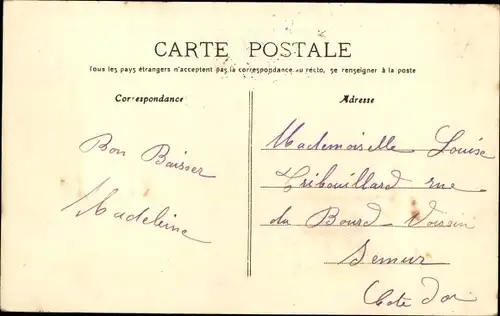 CARTE POSTALE
Tous les pays étrangers n'acceptent pas la correspondance au recto, se renseigner à la poste
Correspondance
Adresse
Bon Baiser
Madeleine
Mademoiselle Louise
Tribouillard rue
du Bourd-Voisin
Semur
Cote d'or